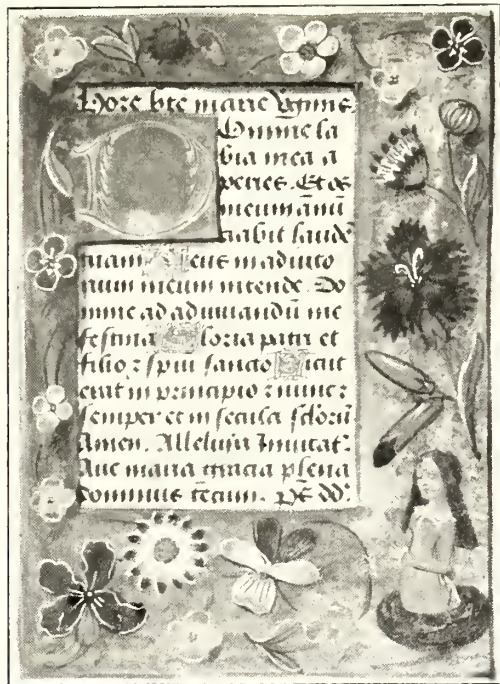 Hore bte marie v̄ginis
Domine la
bia mea a
peries. Et os
meum ānū
ciabit laudē
tuam Deus in adiuto
rium meum intende. Do
mine ad adiuuandū me
festina Gloria patri et
filio ⁊ spui sancto Sicut
erat in principio ⁊ nunc ⁊
semper et in secula sclorū
Amen. Alleluia Inuitat᷑
Aue maria gracia plena
dominus tecum. Ps̄ dd᷑